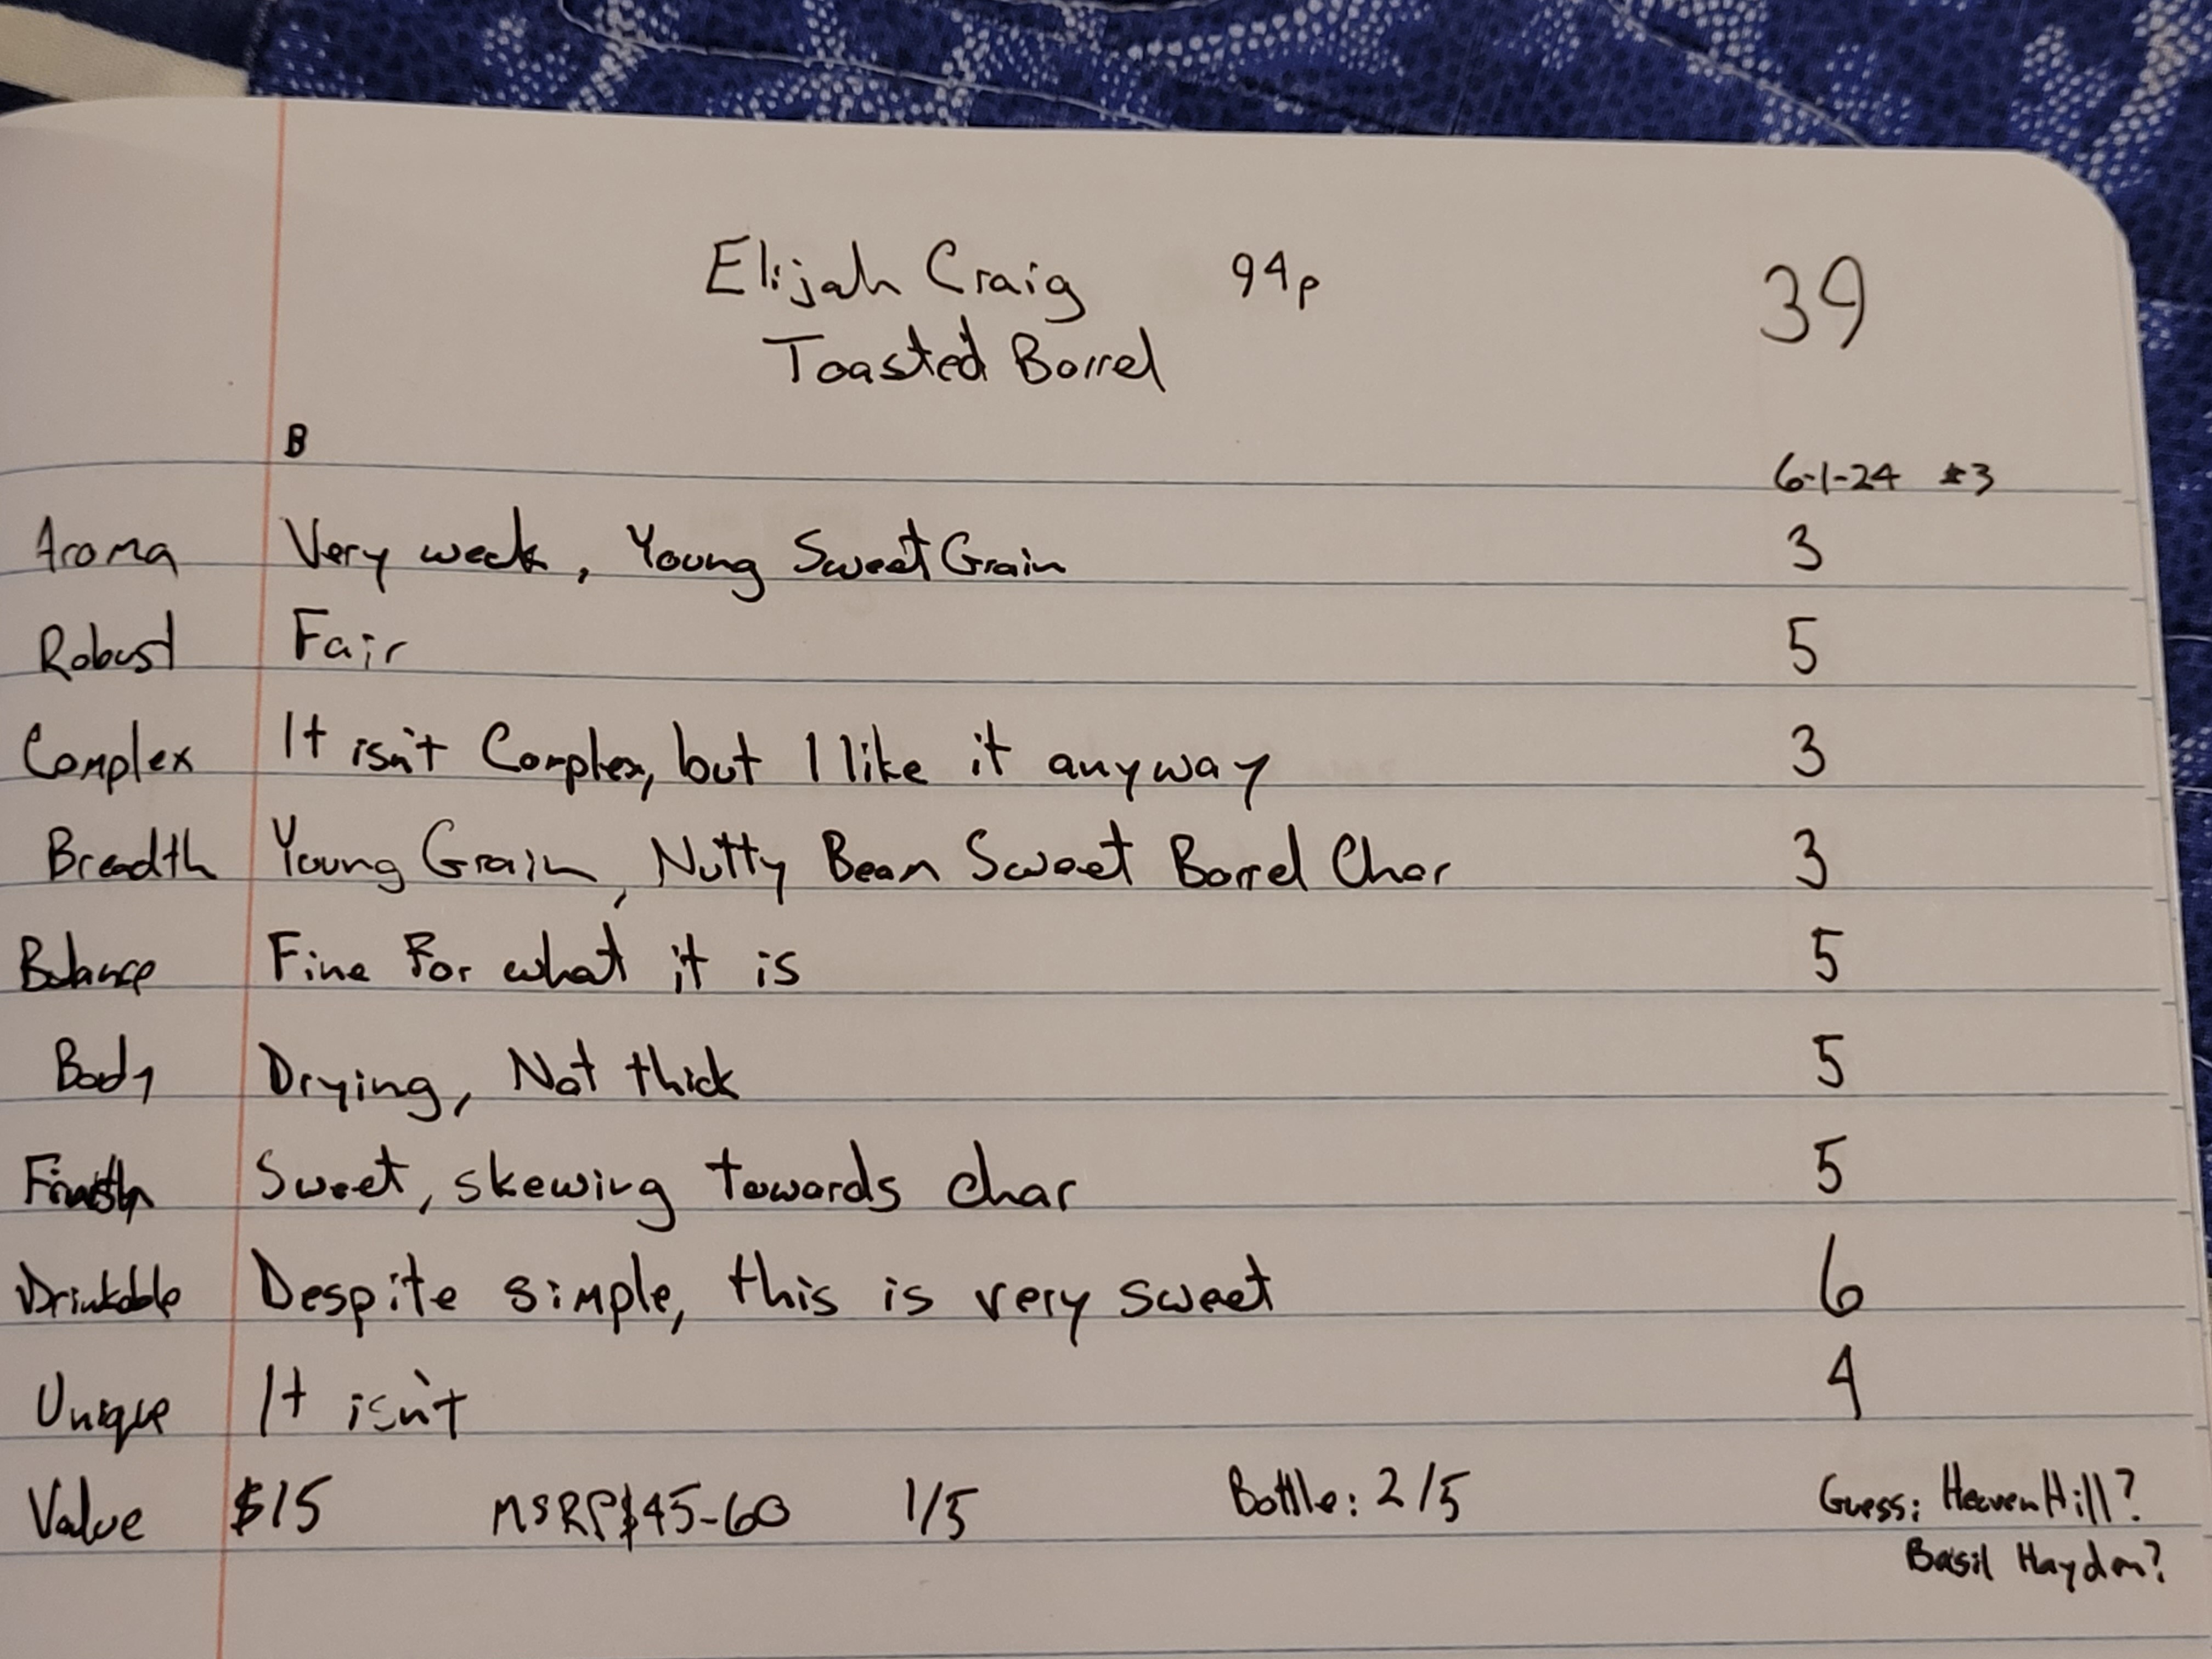 Elijah Craig 94p 39
Toasted Barrel
B
6-1-24 #3
Aroma Very weak, Young Sweet Grain 3
Robust Fair 5
Complex It isn't Complex, but I like it anyway 3
Breadth Young Grain, Nutty Bean Sweet Barrel Char 3
Balance Fine For what it is 5
Body Drying, Not thick 5
Finish Sweet, skewing towards char 5
Drinkable Despite simple, this is very sweet 6
Unique It isn't 4
Value $15 MSRP $45-60 1/5 Bottle: 2/5 Guess: Heaven Hill?
Basil Hayden?